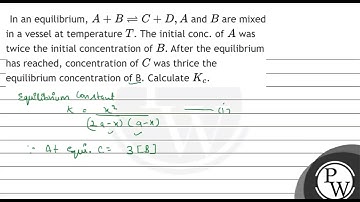 In an equilibrium, A + B ⇌ C + D, A and B are mixed
in a vessel at temperature T. The initial conc. of A was
twice the initial concentration of B. After the equilibrium
has reached, concentration of C was thrice the
equilibrium concentration of B. Calculate K_c.
Equilibrium constant
K = x² / (2a-x) (a-x) —— (i)
∵ At equi. C = 3[B]
PW